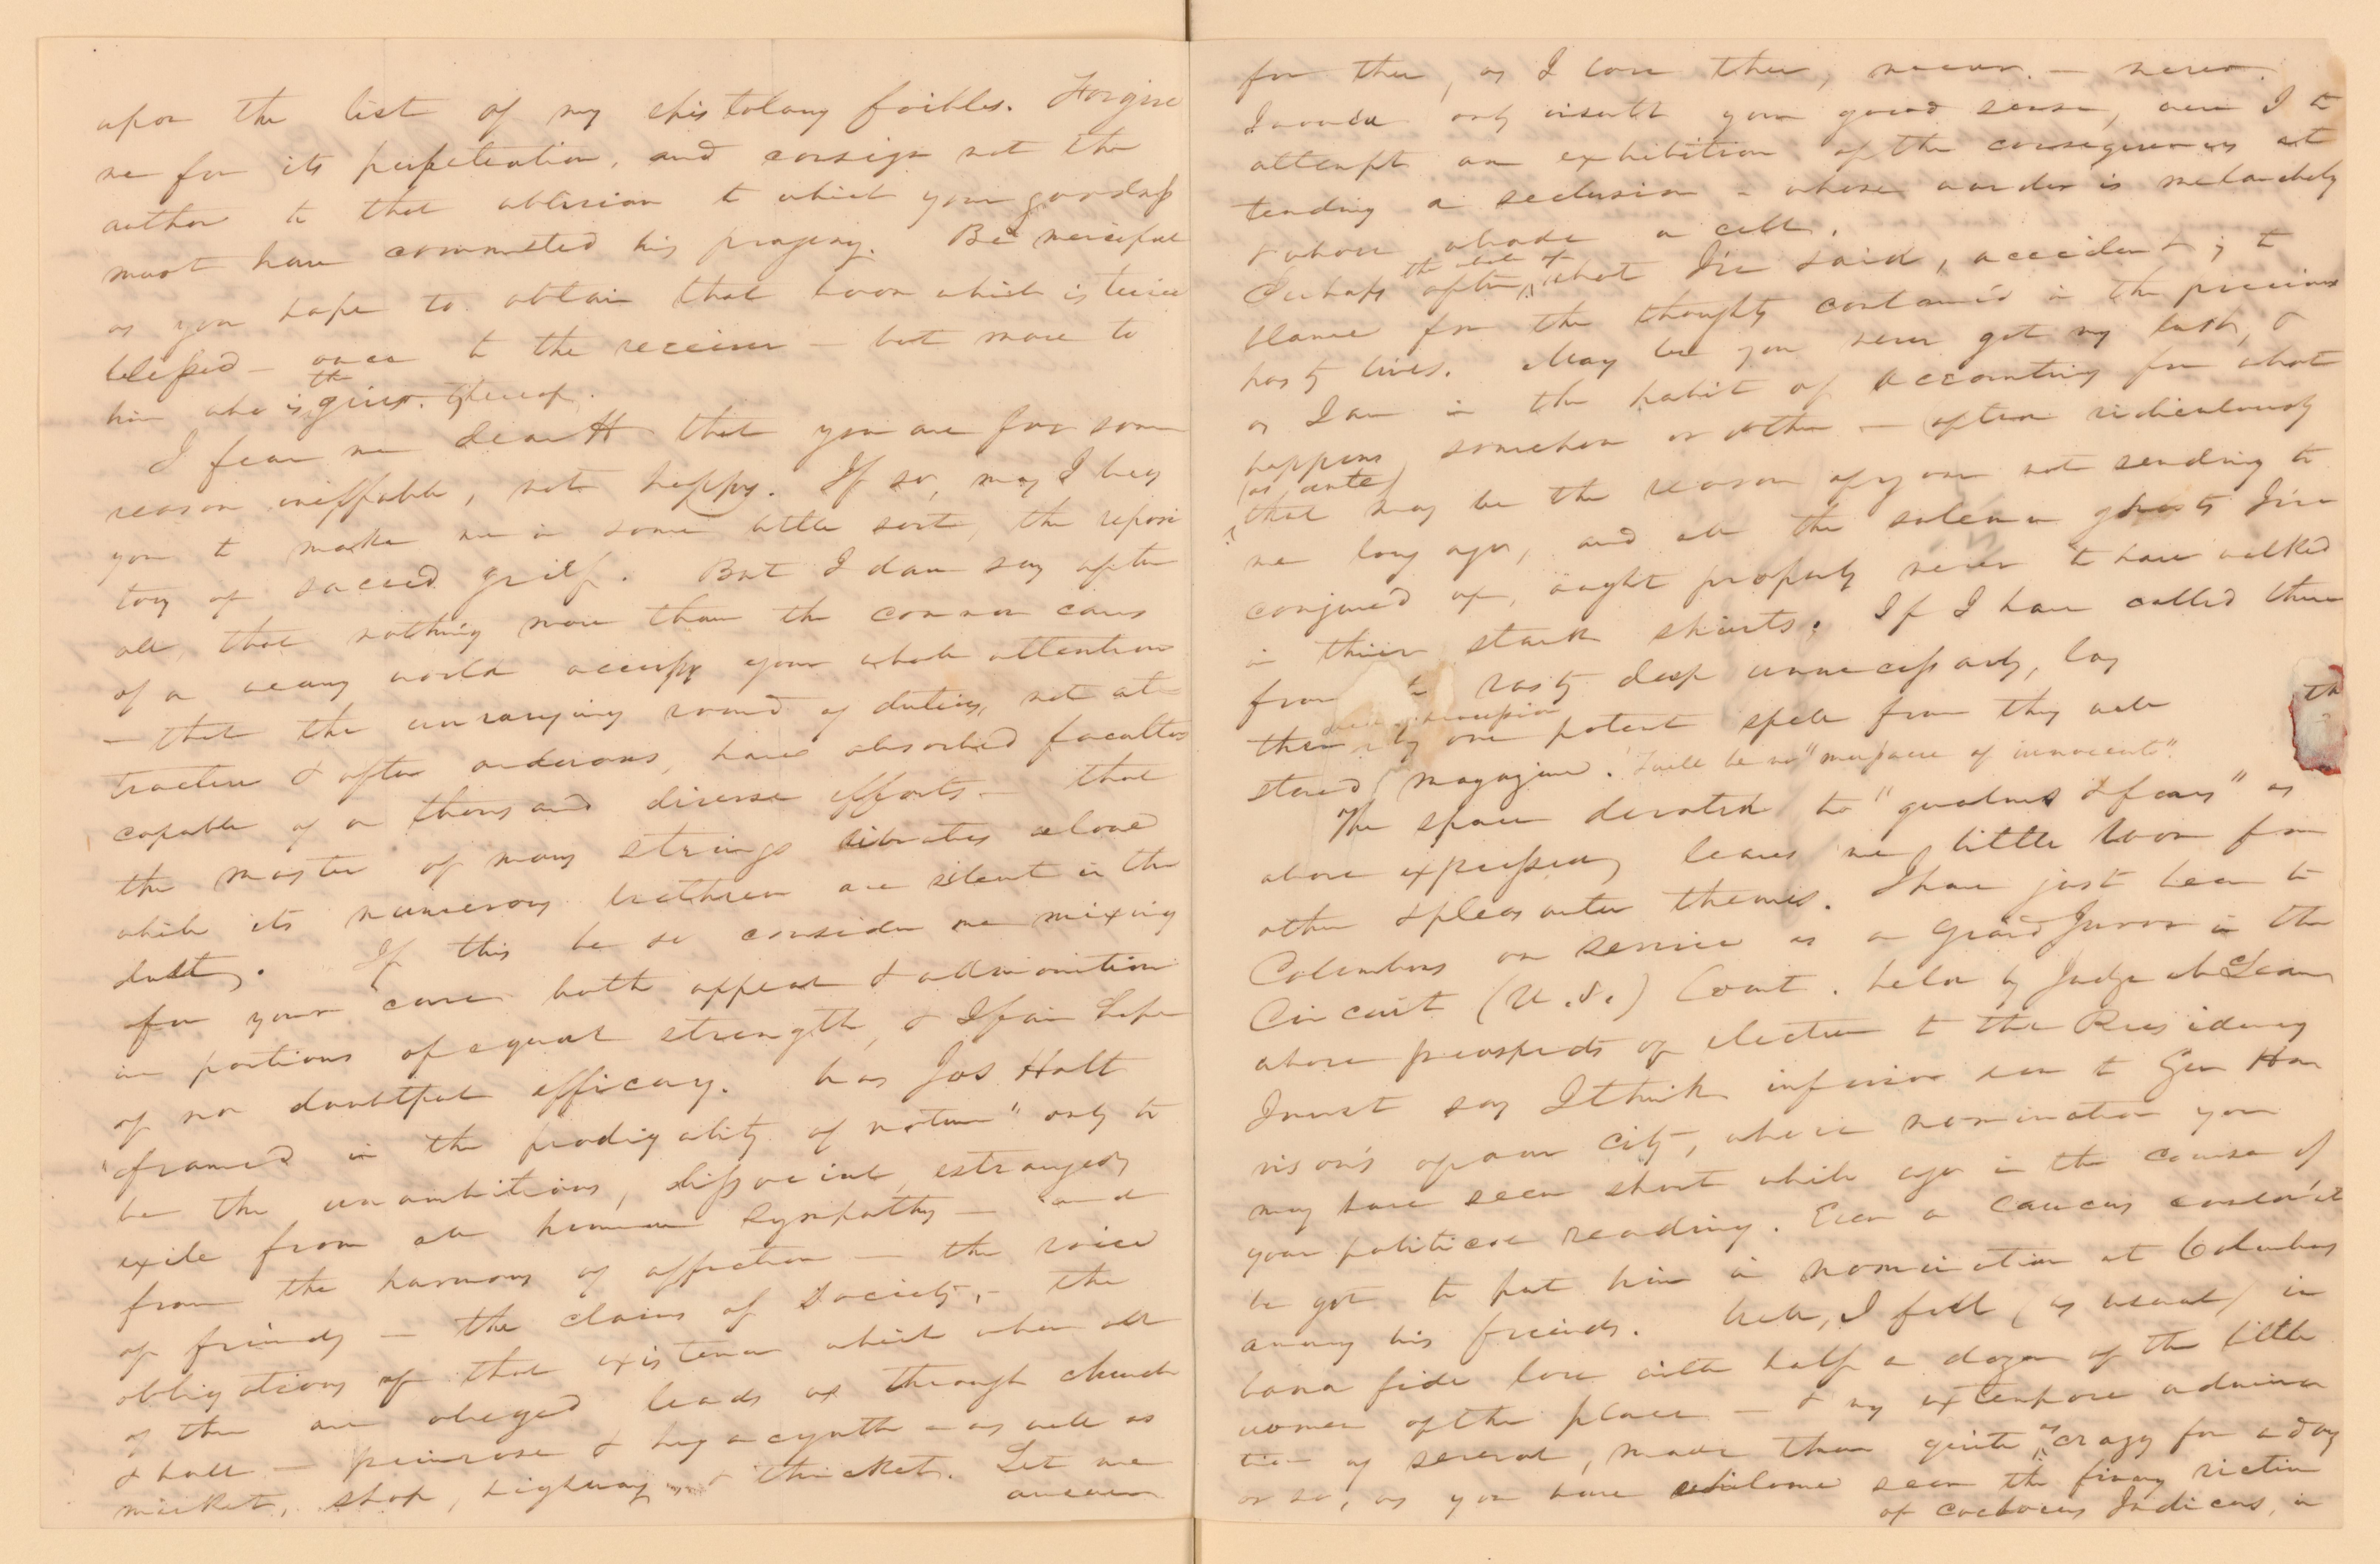 upon the list of my epistolary foibles. Forgive
me for its perpetration, and consign not the
author to that oblivion to which your goodness
must have committed his progeny. Be merciful
as you hope to obtain that boon which is twice
blessed — once to the receiver — but more to
him who is the giver thereof.
I fear me dear H that you are for some
reason ineffable, not happy. If so, may I beg
you to make me in some little sort, the reposi
tory of sacred grief. But I dare say after
all, that nothing more than the common cares
of a weary world occupy your whole attention
— that the unvarying round of duties, not at-
tractive & often onerous, have absorbed faculties
capable of a thousand diverse efforts — that
the master of many strings vibrates alone
while its numerous brethren are silent in the
dust. If this be so consider me mixing
for your case both appeal & admonition
in portions of equal strength, & I fain hope
of no doubtful efficacy. Was Jos Holt
"framed in the prodigality of nature" only to
be the unambitious, dissocial, estranged,
exile from all human sympathy — and
from the harmony of affection — the voice
of friends — the claims of society, — the
obligations of that existence which when all
of them are obeyed leads us through church
& hall — primrose & hyacynth — as well as
market, shop, highway & thicket. Let me
answer
for thee, as I love thee, never. — never.
I would only insult your good sense, were I to
attempt an exhibition of the consequences at
tending a seclusion — whose warder is melancholy
& whose abode a cell.
Perhaps after the whole of what I've said, accident is to
blame for the thoughts contained in the previous
hasty lines. May be you never got my last, &
as I am in the habit of accounting for what
happens somehow or other — often ridiculously
(as ante)
that may be the reason of your not sending to
me long ago, and all the solemn ghosts I've
conjured up, ought properly never to have walked
in their stark shirts. If I have called them
from vasty deep unnecessarily, lay
them by one potent spell from thy well
stored magazine. Twill be no "massacre of innocents".
The space devoted to "qualms & fears" as
above expressed, leaves me little room for
other & pleasanter themes. I have just been to
Columbus on service as a Grand Juror in the
Circuit (U.S.) Court. held by Judge McLean
whose prospects of election to the Presidency
I must say I think inferior even to Gen Har
rison's of our city, whose nomination you
may have seen short while ago in the course of
your political reading. Even a caucus couldn't
be got to put him in nomination at Columbus
among his friends. Well, I fell (as usual) in
bona fide love with half a dozen of the little
women of the place — & my extempore admira
tion of several, made them quite as crazy for a day
or so, as you have whilome seen the finny victim
of cocculus Indicus, in